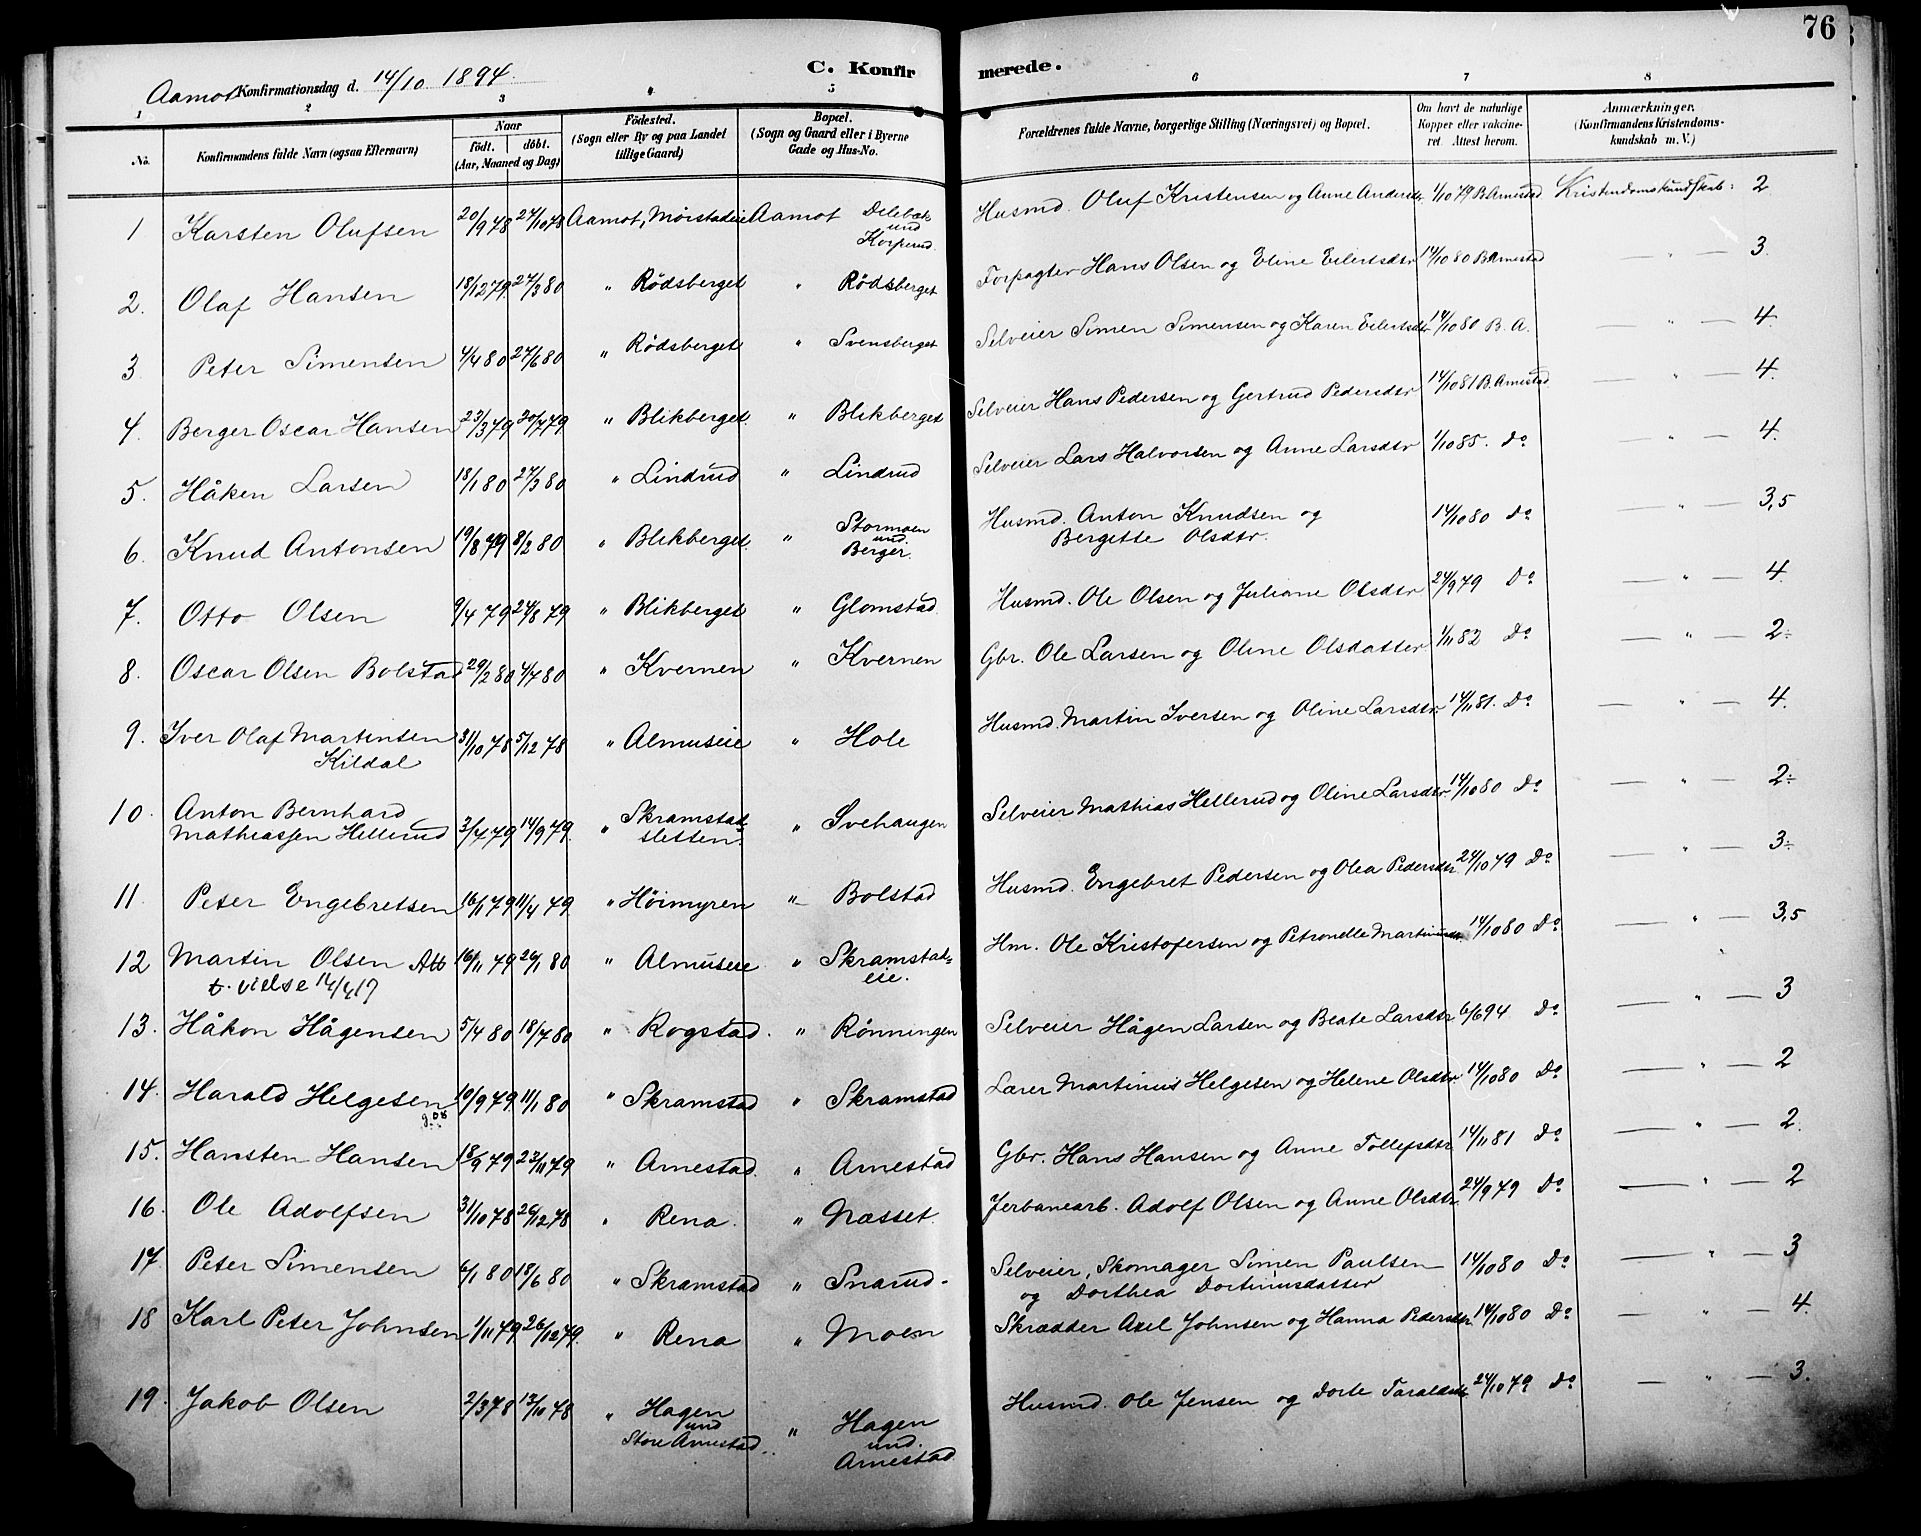 76
C. Konfir merede.
Aamot Konfirmationsdag d. 14/10 1894.
1 2 3 4 5 6 7 8
No. Konfirmandens fulde Navn (ogsaa Efternavn) Naar født. døbt. (Aar, Maaned og Dag) Fødested. (Sogn eller By og paa Landet tillige Gaard) Bopæl. (Sogn og Gaard eller i Byerne Gade og Hus-No. Forældrenes fulde Navne, borgerlige Stilling (Næringsvei) og Bopæl. Om havt de naturlige Kopper eller vakcineret. Attest herom. Anmærkninger. (Konfirmandens Kristendomskundskab m. V.)
1 Karsten Olufsen 20/9 78 27/10 78 Aamot, Moistadeie Aamot und Korperud. Husmd. Oluf Kristensen og Anne Andersdtr 1/10 79 B. Arnestad Kristendomskundskab: 2
2. Olaf Hansen 18/12 79 27/3 80 " Rödsberget " Rödsberget Forpagter Hans Olsen og Eline Eilertsdtr 14/10 80 B. Arnestad — " — 3.
3 Peter Simensen 4/4 80 27/6 80 " Rödsberget " Svensberget Selveier Simen Simensen og Karen Eilertsdtr 14/10 80 B. A. — " — 4.
4. Berger Oscar Hansen 23/3 79 20/7 79 " Blikberget. " Blikberget Selveier Hans Pedersen og Gertrud Pedersdtr 14/10 81 B. Arnestad — " — 4.
5. Håken Larsen 18/1 80 27/3 80 " Lindrud " Lindrud Selveier Lars Halvorsen og Anne Larsdtr 1/10 85. Do — " — 4.
6. Knud Antonsen 19/8 79 8/2 80 " Blikberget. " Stormoen und. Berger. Husmd. Anton Knudsen og Bergette Olsdtr. 14/10 80 Do — " — 3,5
7. Otto Olsen 9/4 79 24/8 79 " Blikberget " Glomstad Husmd. Ole Olsen og Juliane Olsdtr 24/9 79 Do — " — 4.
8. Oscar Olsen Bolstad 29/2 80 4/4 80 " Kvernen " Kvernen Gbr. Ole Larsen og Oline Olsdatter 1/11 82 Do — " — 2÷
9. Iver Olaf Martinsen Kildal 31/10 78 5/12 78 " Almuseie " Hole Husmd. Martin Iversen og Oline Larsdtr. 14/11 81. Do — " — 4.
10. Anton Bernhard Mathiassen Hellerud 3/7 79 14/9 79. " Skramstad-sletten. " Svehaugen Selveier Mathias Hellerud og Oline Larsdtr 14/10 80 Do — " — 2÷
11. Peter Engebretsen 16/1 79 11/4 79 " Höimyren " Bolstad Husmd. Engebret Pedersen og Olea Pedersdtr 24/10 79 Do — " — 3÷
12 Martin Olsen Att t. vielse 14/4 17 16/11 79 26/1 80 " Almuseie " Skramstad-eie. Hm. Ole Kristofersen og Petronelle Martinusdtr 14/10 80 Do — " — 3,5
13. Håkon Hågensen 5/4 80 18/7 80 " Rogstad. " Rönningen Selveier Hågen Larsen og Beate Larsdtr 6/6 94 Do — " — 3
14. Harald Helgesen 10/9 79 11/1 80 " Skramstad " Skramstad Lærer Martinus Helgesen og Helene Olsdtr 14/10 80 Do — " — 2
15. Hansten Hansen 18/9 79 23/11 79 " Arnestad. " Arnestad Gbr. Hans Hansen og Anne Tollefsdtr. 14/11 81 Do — " — 2.
16. Ole Adolfsen 31/10 78 26/12 78 " Rena. " Næsset. Jerbanearb. Adolf Olsen og Anne Olsdtr. 24/9 79 Do — " — 2
17. Peter Simensen 6/1 80 18/6 80 " Skramstad " Snarud. Selveier, Skomager Simen Paulsen og Dorthea Dortinusdatter 14/10 80 Do — " — 3
18 Karl Peter Johnsen 1/11 79 26/12 79. " Rena " Moen Skrædder Axel Johnsen og Hanna Pedersdtr. 14/10 80 Do — " — 4.
19. Jakob Olsen 2/3 78 13/10 78 " Hagen und Store Arnestad. " Hagen und. Arnestad Husmd. Ole Jensen og Dorte Taraldsdtr 24/10 79 Do — " — 3.